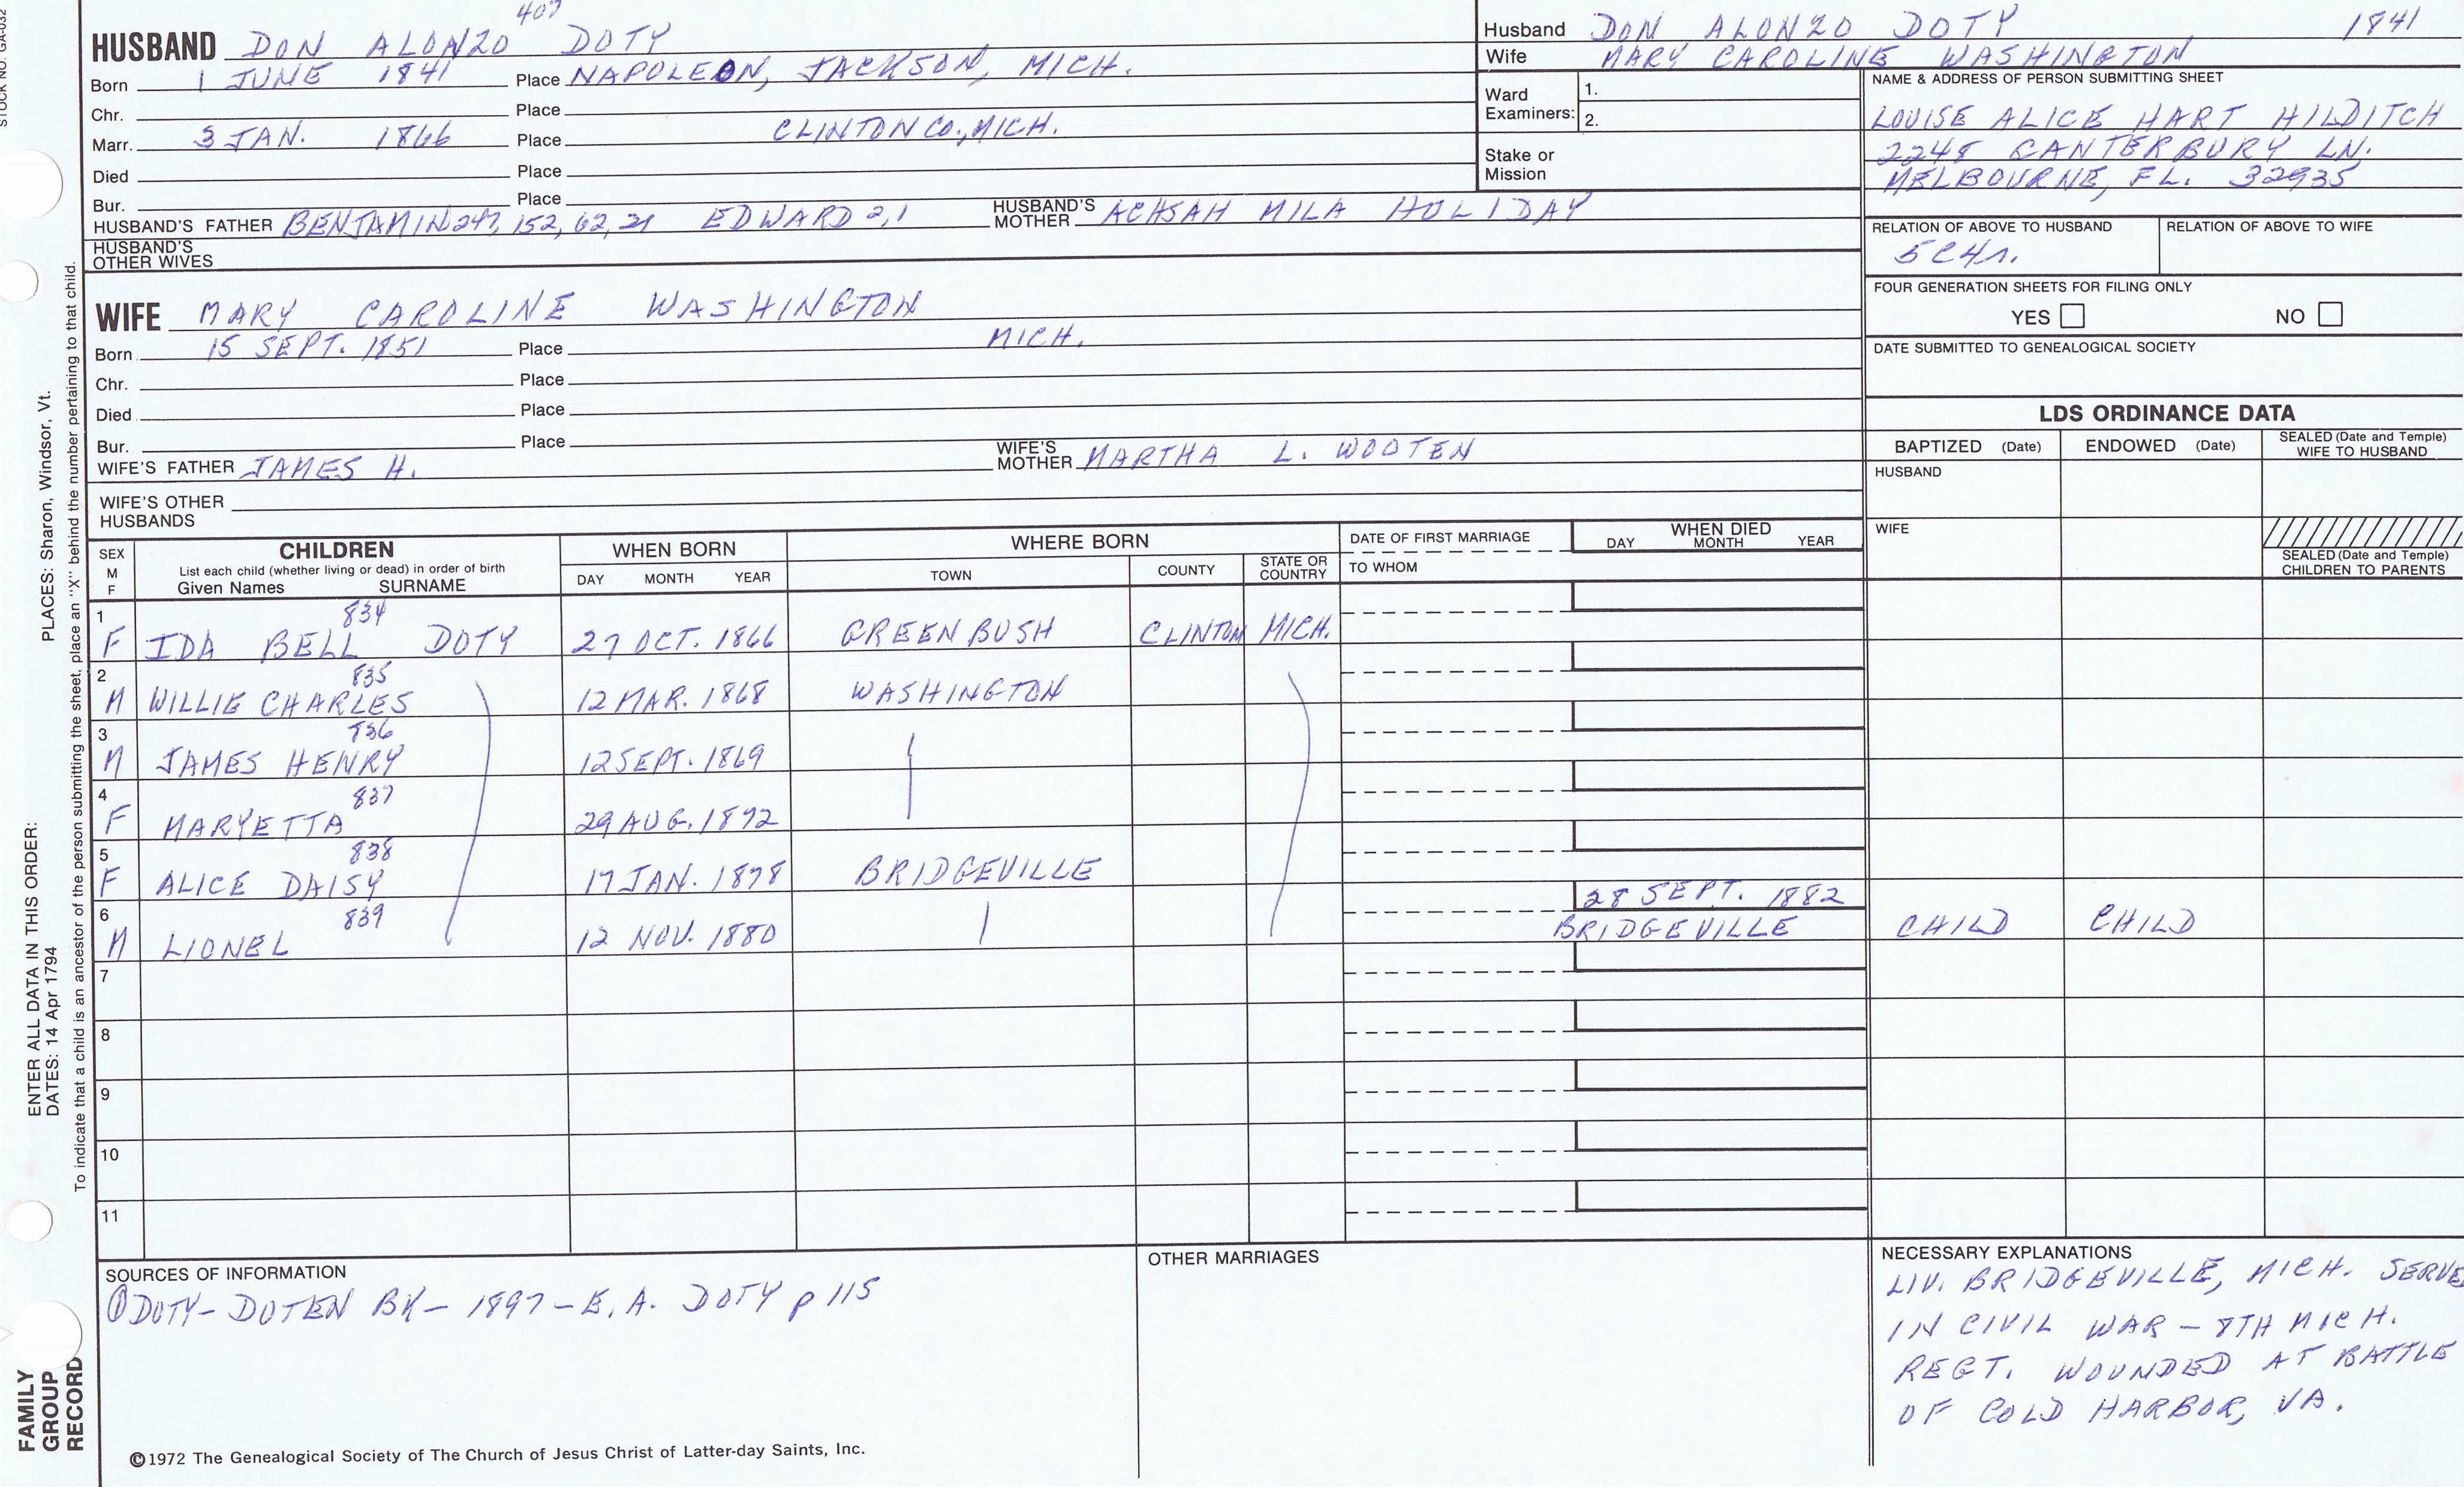 STOCK NO. GA-032
PLACES: Sharon, Windsor, Vt.
ENTER ALL DATA IN THIS ORDER:
DATES: 14 Apr 1794
To indicate that a child is an ancestor of the person submitting the sheet, place an "X" behind the number pertaining to that child.
FAMILY
GROUP
RECORD
407
HUSBAND DON ALONZO DOTY
Born 1 JUNE 1841 Place NAPOLEON, JACKSON, MICH.
Chr. Place
Marr. 3 JAN. 1866 Place CLINTON CO., MICH.
Died Place
Bur. Place
HUSBAND'S FATHER BENJAMIN 247, 152, 62, 21 EDWARD 2,1 HUSBAND'S MOTHER ACHSAH MILA HOLIDAY
HUSBAND'S
OTHER WIVES
WIFE MARY CAROLINE WASHINGTON
Born 15 SEPT. 1851 Place MICH.
Chr. Place
Died Place
Bur. Place
WIFE'S FATHER JAMES H. WIFE'S MOTHER MARTHA L. WOOTEN
WIFE'S OTHER
HUSBANDS
Husband DON ALONZO DOTY 1841
Wife MARY CAROLINE WASHINGTON
Ward
Examiners: 1.
2.
Stake or
Mission
NAME & ADDRESS OF PERSON SUBMITTING SHEET
LOUISE ALICE HART HILDITCH
2248 CANTERBURY LN.
MELBOURNE, FL. 32935
RELATION OF ABOVE TO HUSBAND RELATION OF ABOVE TO WIFE
5C4r.
FOUR GENERATION SHEETS FOR FILING ONLY
YES NO
DATE SUBMITTED TO GENEALOGICAL SOCIETY
LDS ORDINANCE DATA
BAPTIZED (Date) ENDOWED (Date) SEALED (Date and Temple) WIFE TO HUSBAND
HUSBAND
WIFE
SEALED (Date and Temple)
CHILDREN TO PARENTS
SEX M F CHILDREN WHEN BORN WHERE BORN DATE OF FIRST MARRIAGE WHEN DIED
List each child (whether living or dead) in order of birth
Given Names SURNAME DAY MONTH YEAR TOWN COUNTY STATE OR COUNTRY TO WHOM DAY MONTH YEAR
834
1 F IDA BELL DOTY 27 OCT. 1866 GREEN BUSH CLINTON MICH.
835
2 M WILLIE CHARLES 12 MAR. 1868 WASHINGTON
836
3 M JAMES HENRY 12 SEPT. 1869
837
4 F MARYETTA 29 AUG. 1872
838
5 F ALICE DAISY 17 JAN. 1878 BRIDGEVILLE
839 28 SEPT. 1882
6 M LIONEL 12 NOV. 1880 BRIDGEVILLE CHILD CHILD
7
8
9
10
11
SOURCES OF INFORMATION
① DOTY-DOTEN BK - 1897 - E. A. DOTY p 115
OTHER MARRIAGES
NECESSARY EXPLANATIONS
LIV. BRIDGEVILLE, MICH. SERVE
IN CIVIL WAR - 8TH MICH.
REGT. WOUNDED AT BATTLE
OF COLD HARBOR, VA.
©1972 The Genealogical Society of The Church of Jesus Christ of Latter-day Saints, Inc.